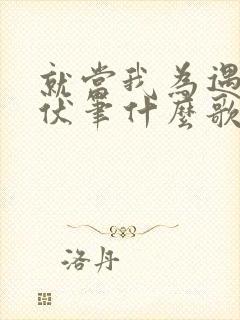 就當我為遇
伏筆什麼歌
洛丹